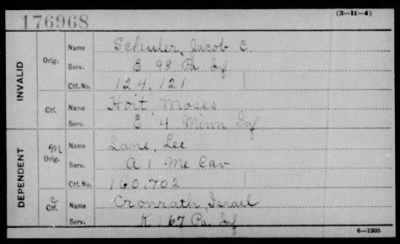 176968
(3-11-4)
INVALID
Orig.
Name Schuler, Jacob C.
Serv. E 98 Pa Inf
Ctf. No. 124,121
Ctf.
Name Hoit Moses
Serv. E 4 Minn Inf
DEPENDENT
M
Orig.
Name Lane, Lee
Serv. A 1 Me Cav
Ctf. No. 160,702
C
Ctf.
Name Cronrath, Israel
Serv. K 167 Pa Inf
6-1303